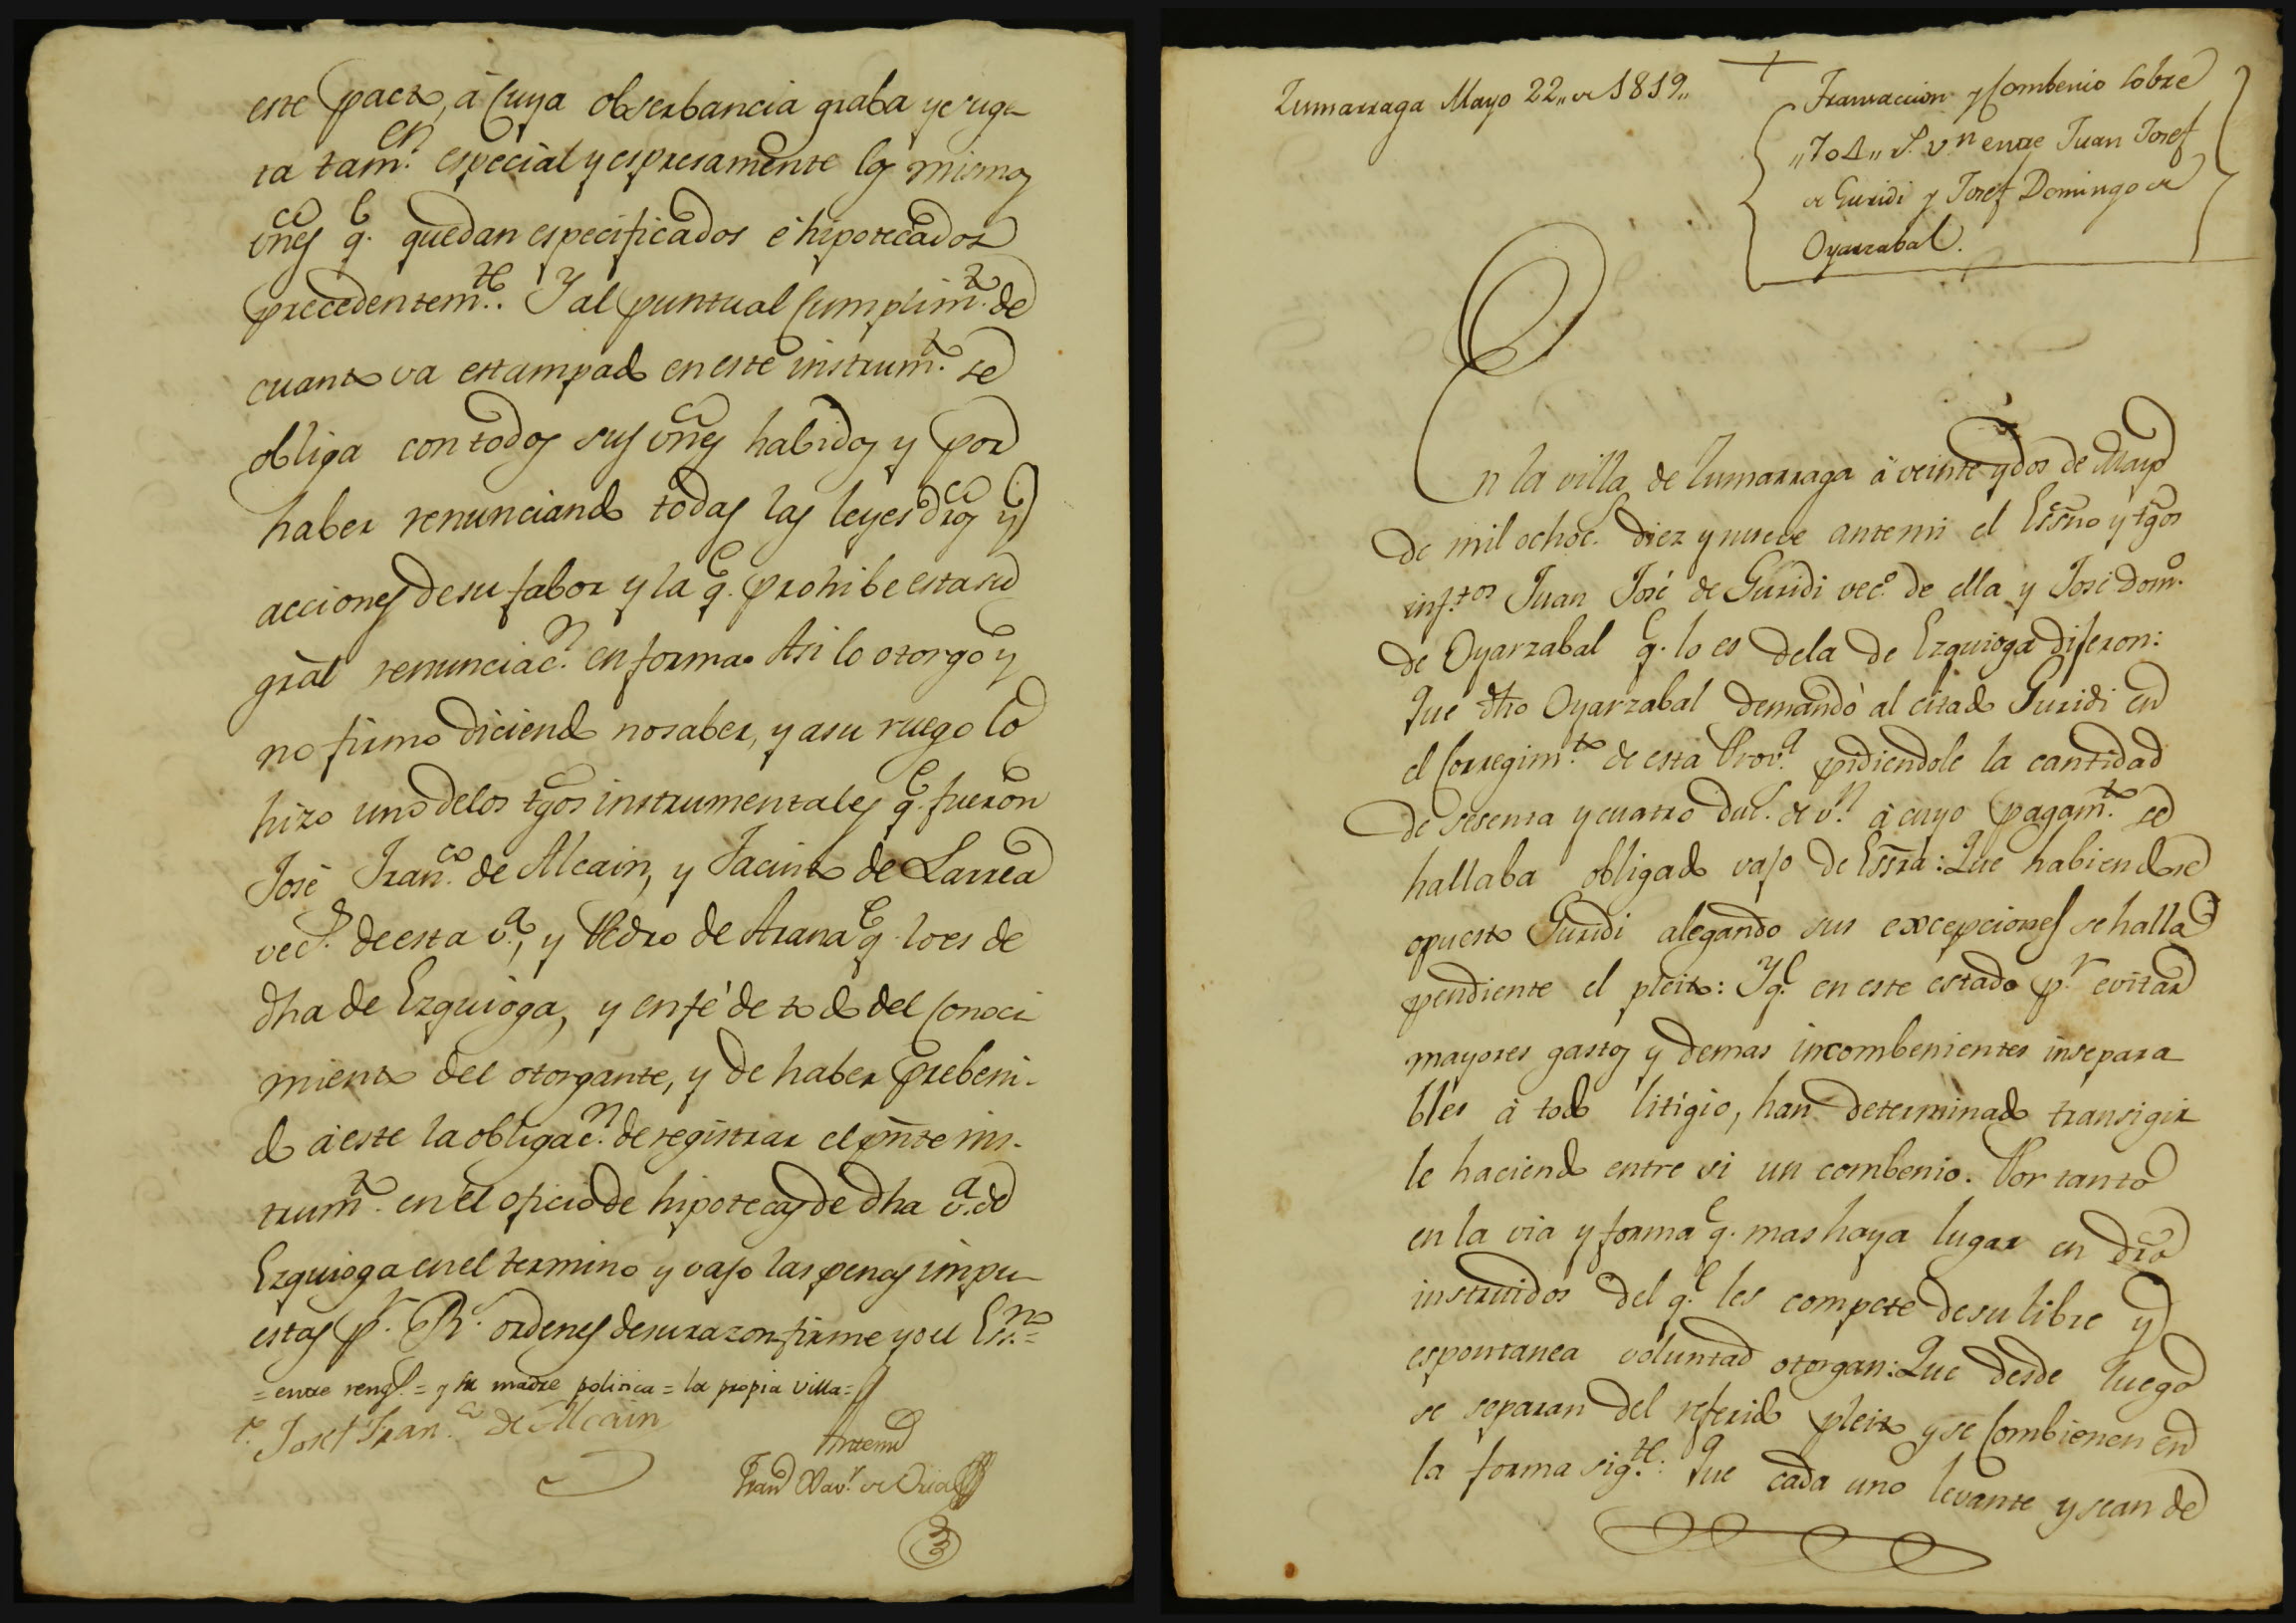 este pacto, à cuya obserbancia graba y suge-
ta tamen. especial y espresamente los mismos
vnes q.e quedan especificados é hipotecados
precedentem.te. Y al puntual cumplim.to de
cuanto va estampado en este instrum.to se
obliga con todos sus vnes habidos y por
haber renunciando todas las leyes dros y
acciones de su fabor y la q.e prohibe esta su
gral renunciac.n en forma. Asi lo otorgo y
no firmo diciendo no saber, y a su ruego lo
hizo uno de los tgos instrumentales q.e fueron
José Fran.co de Alcain, y Jacinto de Larrea
vec.s de esta v.a, y Pedro de Arana q.e lo es de
dha de Ezquioga, y en fé de todo del conoci
miento del otorgante, y de haber prebeni-
do à este la obligac.n de registrar el pnte ins-
trum.to en el oficio de hipotecas de dha v.a de
Ezquioga en el termino y vajo las penas impu-
estas p.r R.s ordenes de su razon firme yo el Ess.no=
= entre reng.s = y su madre politica = la propia villa =
t.o Josef Fran.co de Alcain
Antemi
Fran.co Xav.r de Oria
Zumarraga Mayo 22,, de 1819,,
Transaccion y Combenio sobre
,,704,, r.s v.n entre Juan Josef
de Guridi y Josef Domingo de
Oyarzabal.
En la villa de Zumarraga à veinte y dos de Mayo
de mil ochoc.s diez y nueve ante mi el Essno y tgos
inf.tos Juan José de Guridi vec.o de ella y José Dom.o
de Oyarzabal q.e lo es de la de Ezquioga dijeron:
Que dho Oyarzabal demandò al citado Guridi en
el Corregim.to de esta Prov.a pidiendole la cantidad
de sesenta y cuatro duc.s de v.n à cuyo pagam.to se
hallaba obligado vajo de Essra: Que habiendose
opuesto Guridi alegando sus excepciones se halla
pendiente el pleito: Y q.e en este estado p.r evitar
mayores gastos y demas incombenientes insepara
bles à todo litigio, han determinado transigir
le haciendo entre si un combenio. Por tanto
en la via y forma q.e mas haya lugar en dro
instruidos del q.e les compete de su libre y
espontanea voluntad otorgan: Que desde luego
se separan del referido pleito y se combienen en
la forma sig.te: Que cada uno levante y sean de